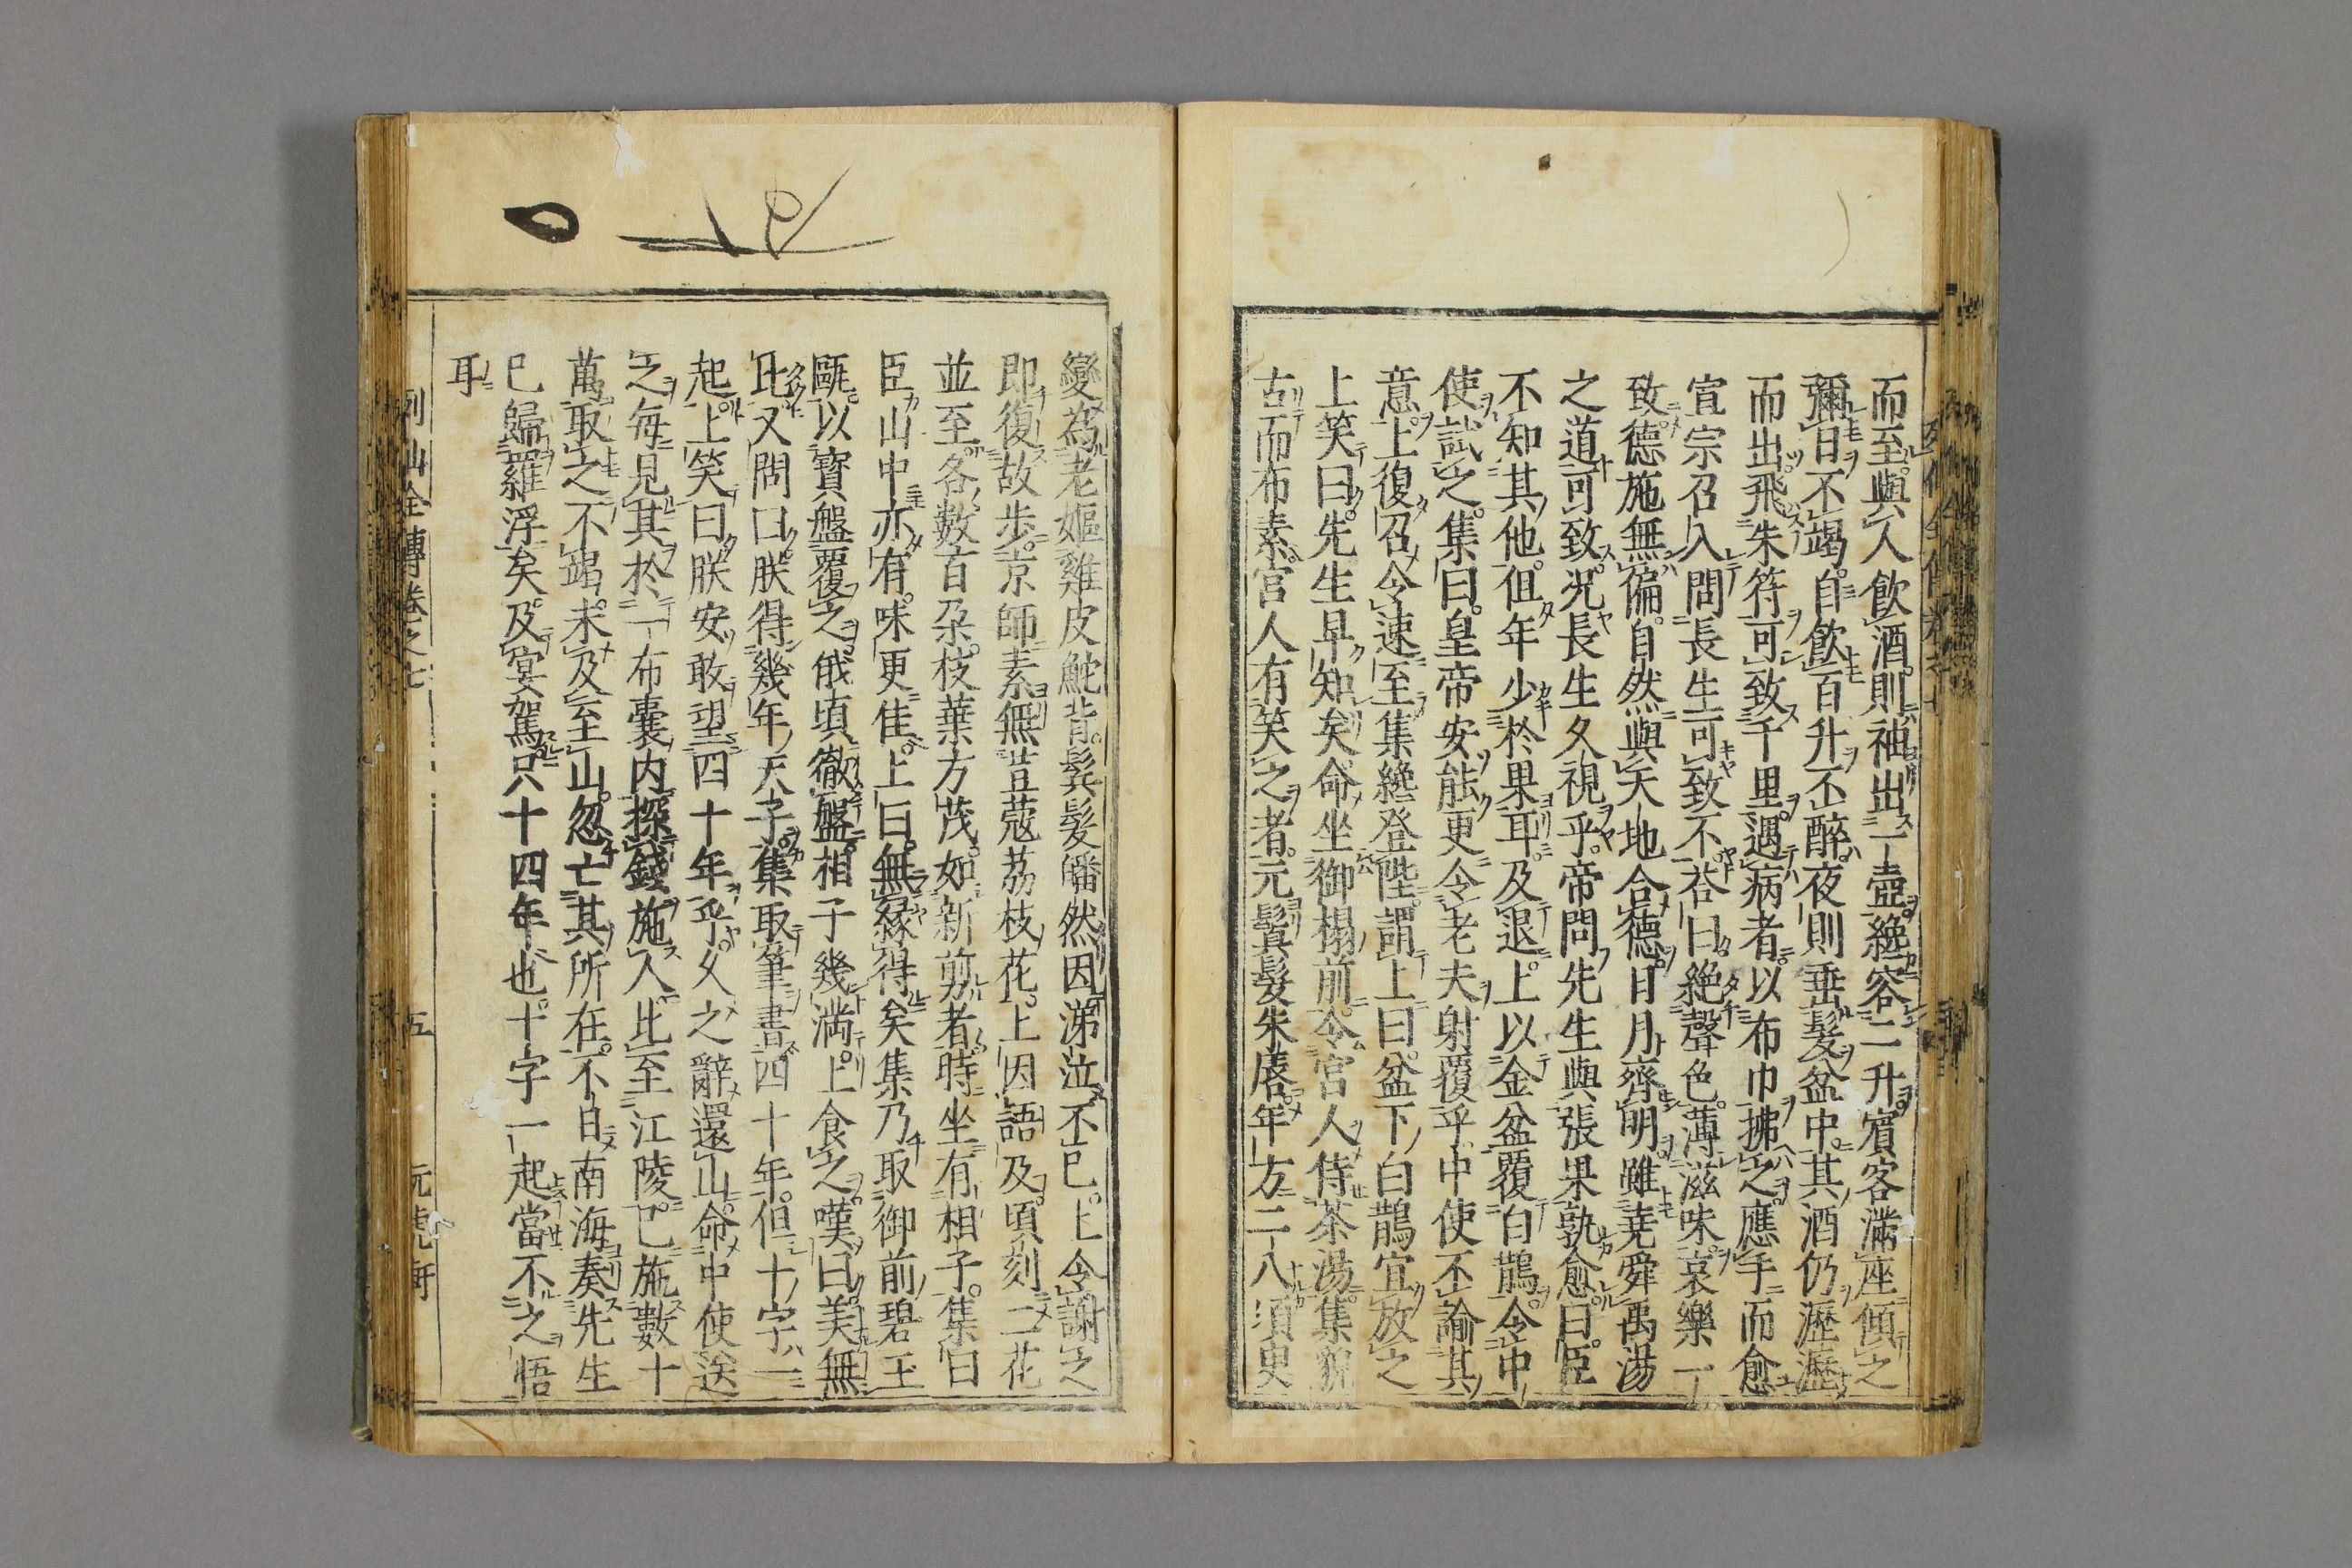 而至與人飲酒則袖出一壺纔容二升賓客滿座傾之
彌日不竭自飲百升不醉夜則垂髮盆中其酒仍瀝瀝
而出飛朱符可致千里遇病者以布巾拂之應手而愈
宣宗召入問長生可致不荅曰絶聲色薄滋味哀樂一
致德施無偏自然與天地合德日月齊明雖堯舜禹湯
之道可致況長生久視乎帝問先生與張果孰愈曰臣
不知其他但年少於果耳及退上以金盆覆白鵲令中
使試之集曰皇帝安能更令老夫射覆乎中使不諭其
意上復召令速至集纔登陛謂上曰盆下白鵲宜放之
上笑曰先生早知矣命坐御榻前令宮人侍茶湯集貌
古而布素宮人有笑之者元鬒髮朱唇年方二八須臾
變為老嫗雞皮鮐背鬂髮皤然因涕泣不已上令謝之
即復故步京師素無荳蔻荔枝花上因語及頃刻二花
並至各數百朶枝葉方茂如新剪者時坐有相子集曰
臣山中亦有味更佳上曰無緣得矣集乃取御前碧玉
甌以寶盤覆之俄頃徹盤相子幾滿上食之嘆曰美無
比又問曰朕得幾年天子集取筆書四十年但十字一
起上笑曰朕安敢望四十年乎久之辭還山命中使送
之每見其於一布囊内探錢施人比至江陵已施數十
萬取之不竭未及至山忽亡其所在不日南海奏先生
巳歸羅浮矣及宴駕只十四年也十字一起當不之悟
耳
列仙全傳卷之七
五